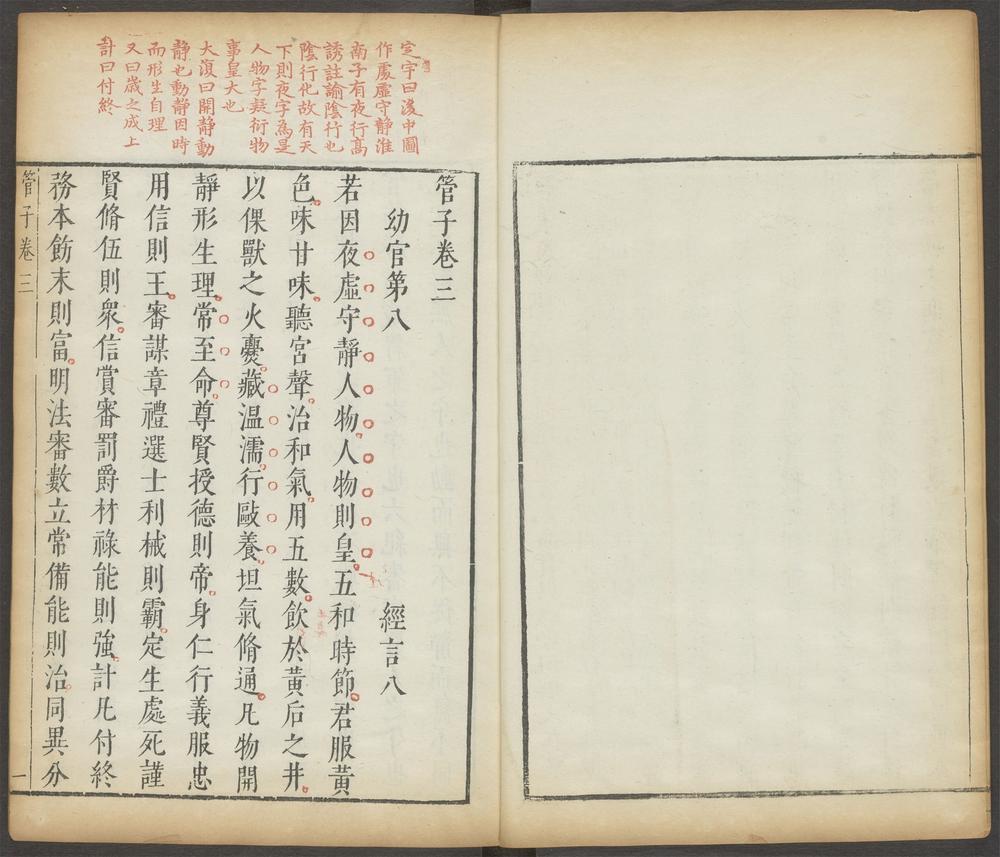 定宇曰後中圖
作處虛守靜淮
南子有夜行高
誘註諭陰行也
陰行化故有天
下則夜字為是
人物字疑衍物
事皇大也
大復曰開靜動
靜也動靜因時
而形生自理
又曰歲之成上
計曰付終
管子卷三
幼官第八 經言八
若因夜虛守靜人物人物則皇五和時節君服黃
色味甘味聽宮聲治和氣用五數飲於黃后之井
以倮獸之火爨藏溫濡行敺養坦氣脩通凡物開
靜形生理常至命尊賢授德則帝身仁行義服忠
用信則王審謀章禮選士利械則霸定生處死謹
賢脩伍則衆信賞審罰爵材祿能則強計凡付終
務本飭末則富明法審數立常備能則治同異分
管子卷三
一